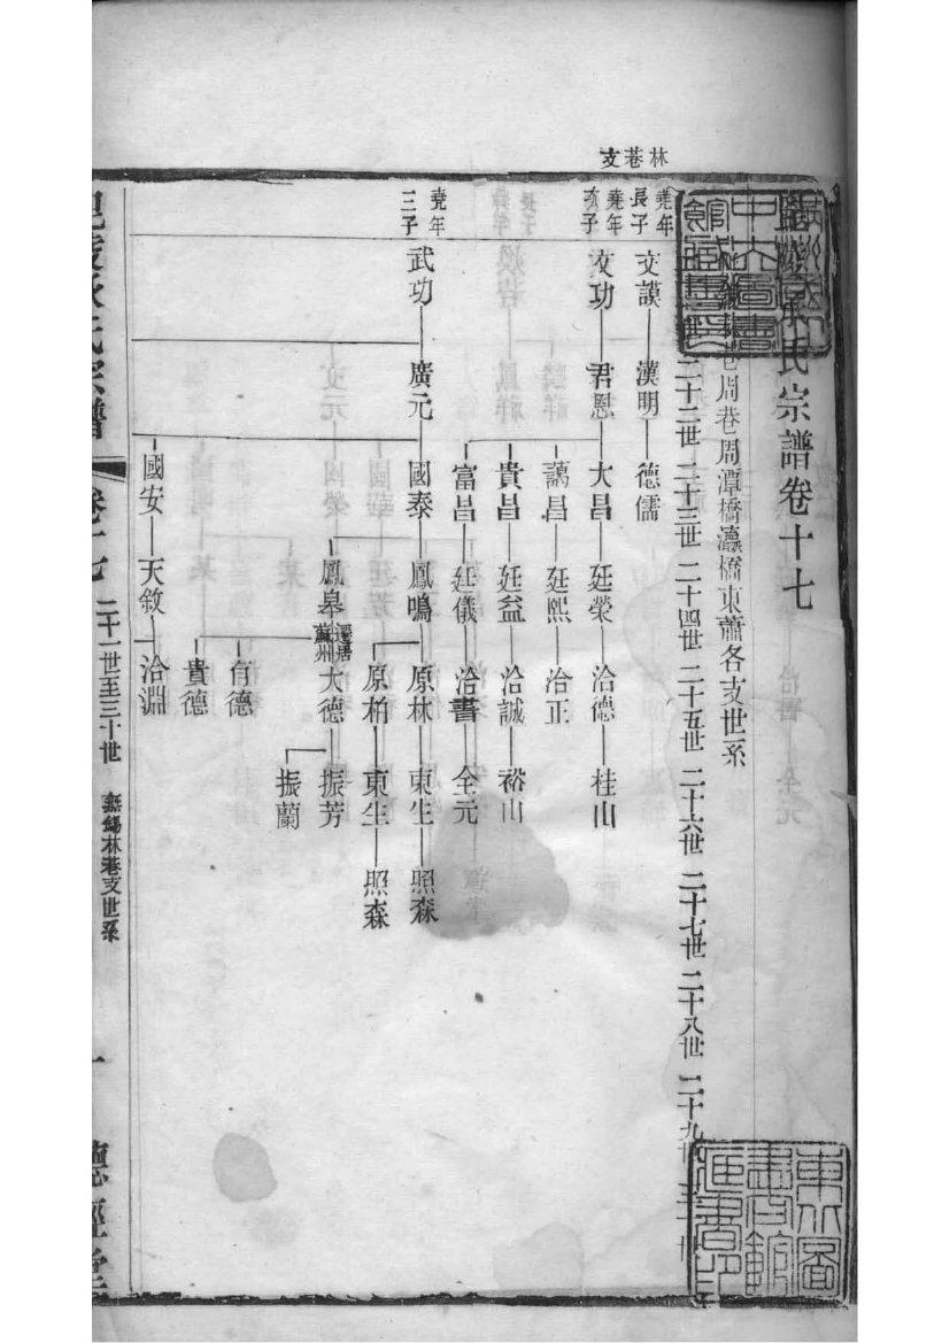 林巷支
氏宗譜卷十七
巷周巷周潭橋瀛橋東蕭各支世系
二十二世 二十三世 二十四世 二十五世 二十六世 二十七世 二十八世 二十九
堯年長子 文謨 漢明 德儒
堯年次子 文功 君恩 大昌 廷榮 洽德 桂山
謁昌 廷熙 洽正
貴昌 廷益 洽誠 裕山
富昌 廷儀 洽書 全元
堯年三子 武功 廣元 國泰 鳳鳴 原林 東生 照森
原柏 東生 照森
鳳皋 遷居蘇州 大德 振芳
振蘭
侑德
貴德
國安 天敘 洽淵
氏宗譜 卷十七 二十一世至三十世 無錫林巷支世系 一 德經堂